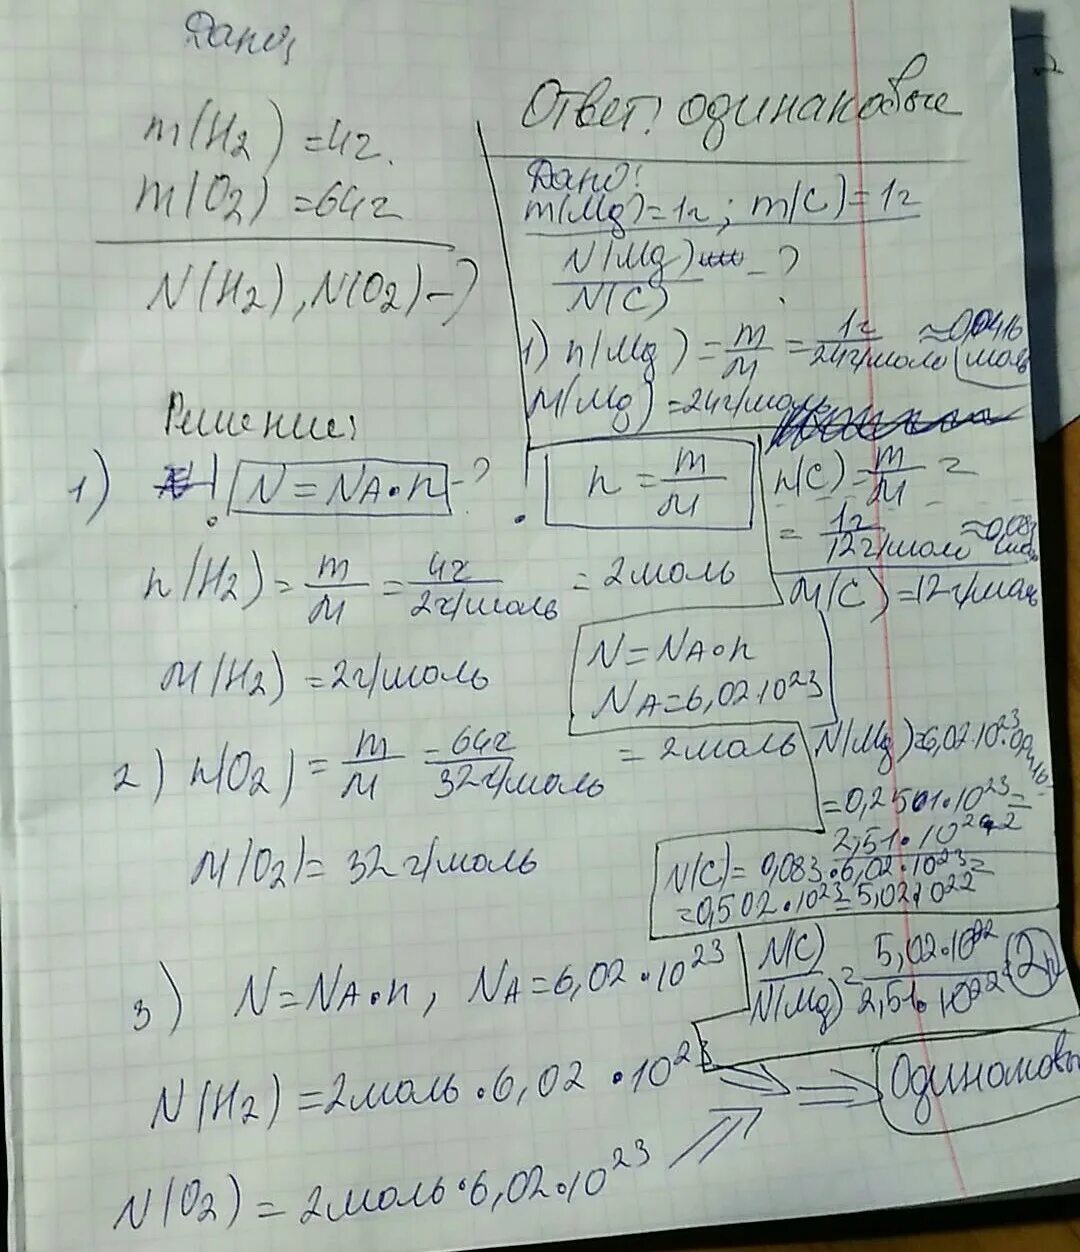 Дано:
m(H2) = 4г.
m(O2) = 64г
N(H2), N(O2) - ?
Решение:
1) N = NA·n - ?
n = m/M
n(H2) = m/M = 4г/2г/моль = 2моль
M(H2) = 2г/моль
2) n(O2) = m/M = 64г/32г/моль = 2моль
M(O2) = 32г/моль
3) N = NA·n, NA = 6,02·10^23
N(H2) = 2моль·6,02·10^23
N(O2) = 2моль·6,02·10^23
⇒ Одинаковы
Ответ: одинаковые
Дано:
m(Mg) = 1г; m(C) = 1г
N(Mg)/N(C) - ?
1) n(Mg) = m/M = 1г/24г/моль ≈ 0,0416 моль
M(Mg) = 24г/моль
n(C) = m/M =
= 1г/12г/моль ≈ 0,083 моль
M(C) = 12г/моль
N = NA·n
NA = 6,02·10^23
N(Mg) = 6,02·10^23·
= 0,2501·10^23 =
2,51·10^22
N(C) = 0,083·6,02·10^23 =
= 0,502·10^23 = 5,02·10^22
N(C)/N(Mg) = 5,02·10^22/2,51·10^22